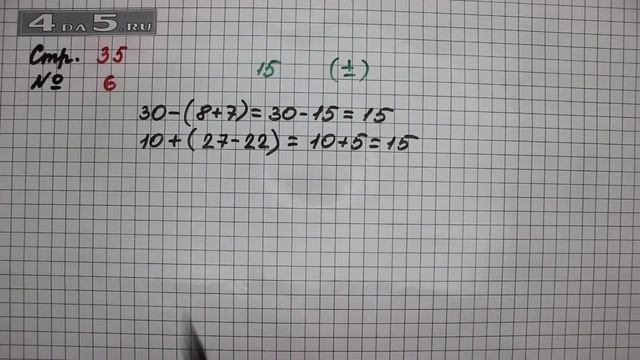 4DA5.RU
Стр. 35
№ 6
15 (±)
30-(8+7)=30-15=15
10+(27-22)=10+5=15